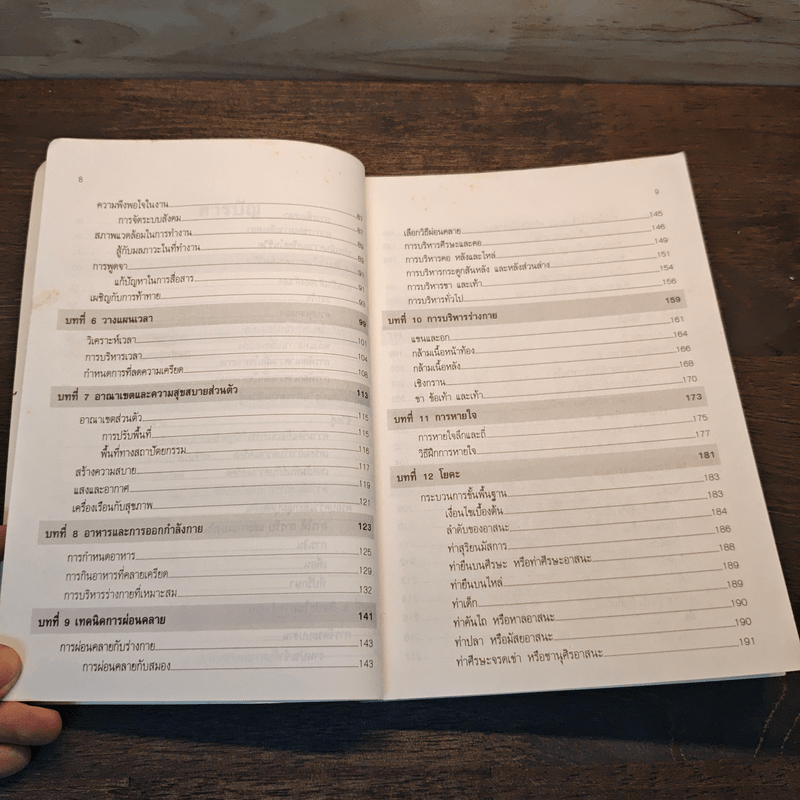 8
ความพึงพอใจในงาน
การจัดระบบสังคม 87
สภาพแวดล้อมในการทำงาน
สู้กับมลภาวะในที่ทำงาน 89
การพูดจา
แก้ปัญหาในการสื่อสาร 91
เผชิญกับการท้าทาย 93
บทที่ 6 วางแผนเวลา 99
วิเคราะห์เวลา 101
การบริหารเวลา 104
กำหนดการที่ลดความเครียด 108
บทที่ 7 อาณาเขตและความสุขสบายส่วนตัว 113
อาณาเขตส่วนตัว 115
การปรับพื้นที่ 115
พื้นที่ทางสถาปัตยกรรม 116
สร้างความสบาย 117
แสงและอากาศ 119
เครื่องเรือนกับสุขภาพ 121
บทที่ 8 อาหารและการออกกำลังกาย 123
การกำหนดอาหาร 125
การกินอาหารที่คลายเครียด 129
การบริหารร่างกายที่เหมาะสม 132
บทที่ 9 เทคนิคการผ่อนคลาย 141
การผ่อนคลายกับร่างกาย 143
การผ่อนคลายกับสมอง 143
9
เลือกวิธีผ่อนคลาย 145
การบริหารศีรษะและคอ 146
การบริหารคอ หลังและไหล่ 149
การบริหารกระดูกสันหลัง และหลังส่วนล่าง 151
การบริหารขา และเท้า 154
การบริหารทั่วไป 156
บทที่ 10 การบริหารร่างกาย 159
แขนและอก 161
กล้ามเนื้อหน้าท้อง 164
กล้ามเนื้อหลัง 166
เชิงกราน 168
ขา ข้อเท้า และเท้า 170
บทที่ 11 การหายใจ 173
การหายใจลึกและถี่ 175
วิธีฝึกการหายใจ 177
บทที่ 12 โยคะ 181
กระบวนการขั้นพื้นฐาน 183
เงื่อนไขเบื้องต้น 183
ลำดับของอาสนะ 184
ท่าสุริยนมัสการ 186
ท่ายืนบนศีรษะ หรือท่าศีรษะอาสนะ 188
ท่ายืนบนไหล่ 189
ท่าเด็ก 189
ท่าคันไถ หรือหาลอาสนะ 190
ท่าปลา หรือมัสยอาสนะ 190
ท่าศีรษะจรดเข่า หรือชานุศิรอาสนะ 191